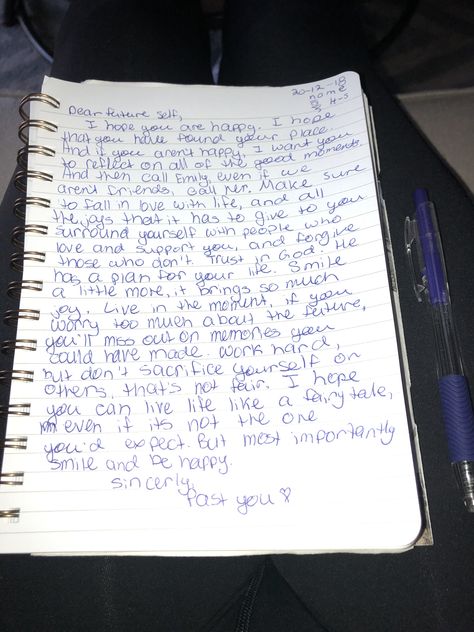 20-12-18
name
H-S
Dear future self,
I hope you are happy. I hope
that you have found your place.
And if you aren't happy, I want you
to reflect on all of the good moments.
And then call Emily, even if we
aren't friends, call her. Make sure
to fall in love with life, and all
the joys that it has to give to you
surround yourself with people who
love and support you, and forgive
those who don't. Trust in God. He
has a plan for your life. Smile
a little more, it brings so much
joy. Live in the moment, if you
worry too much about the future,
you'll miss out on memories you
could have made. Work hard,
but don't sacrifice yourself on
others, that's not fair. I hope
you can live life like a fairytale,
even if its not the one
you'd expect. But most importantly
smile and be happy.
sincerly,
Past you ♡